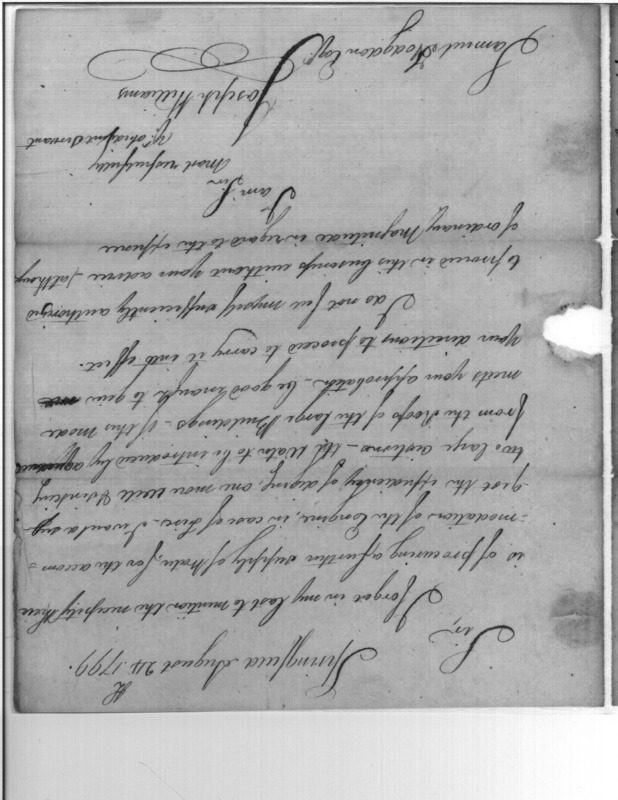 Springfield August 24th 1799.
Sir,
I forgot in my last to mention the necessity there
is of procuring a further supply of Water, for the accom=
=modation of the Engine, in case of fire. I would sug
=gest the expediency of diging, one more well & sinking
two large cisterns - the Water to be introduced by aqueduct
from the Roofs of the large Buildings. If this mode
meets your approbation - be good enough to give
your directions to proceed to carry it into effect.
I do not feel myself sufficiently authorized
to proceed in this business without your advice - althoug
of ordinary Magnitude in regard to the expence
I am
Sir
most respectfully
Yr. obedient Servant
Joseph Williams
Samuel Hodgdon Esqr.